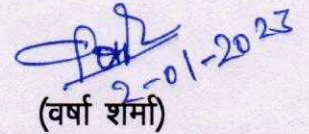 2-01-2023
(वर्षा शर्मा)